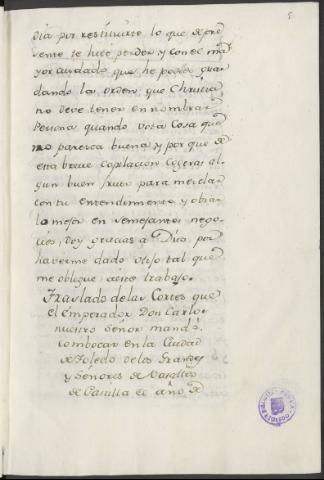 5
dia por restituirte lo que de pre
sente te hice perder, y con el ma
yor cuidado que he podido guar
dando las orden que Christia
no deve tener en nombrar
Persona quando vota cosa que
no parezca buena y por que de
esta breve copilacion cogeras al
gun buen fruto para mezclar
con tu entendimiento y obrar
lo mejor en semejantes nego
cios, doy gracias a Dios por
haverme dado visso tal que
me obligue a este trabajo.
Traslado de las Cortes que
el Emperador Don Carlos
nuestro Señor mandó
combocar en la Ciudad
de Toledo de los Grandes
y Señores de Vasallos
de Castilla el año de
TOLEDO